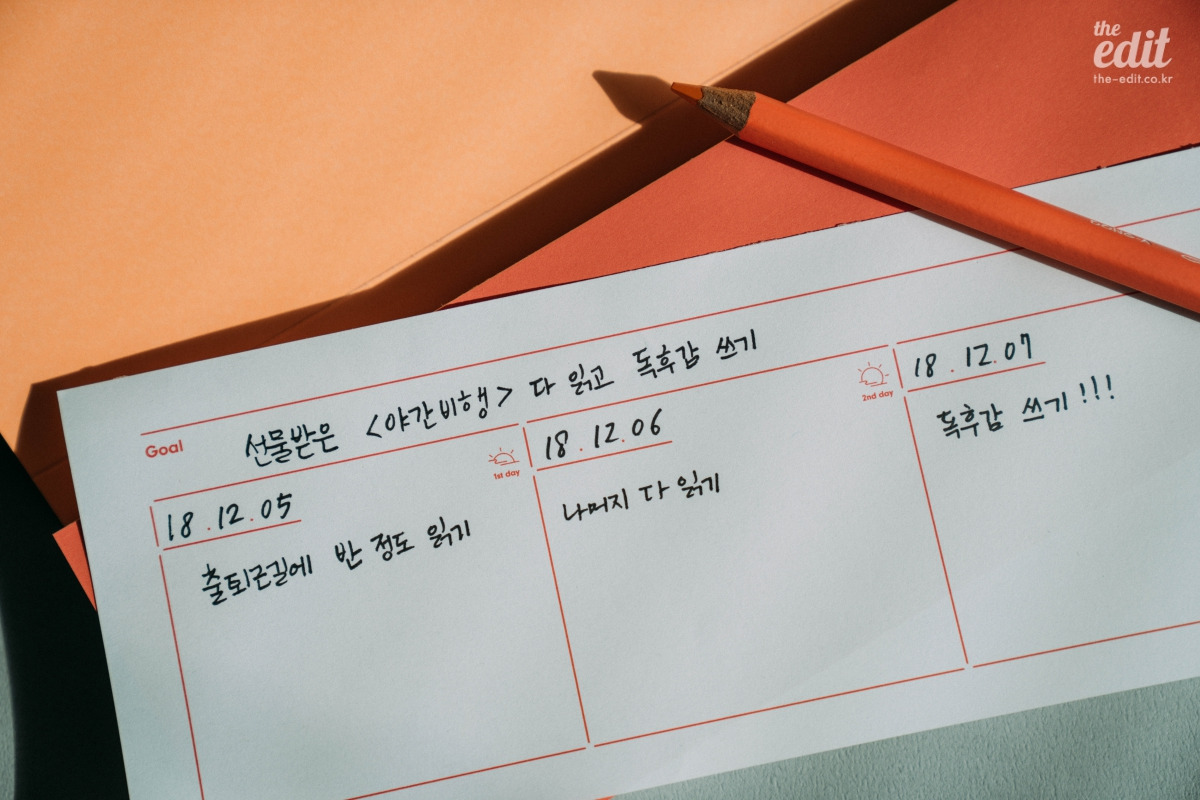 the
edit
the-edit.co.kr
Goal
선물받은 <야간비행> 다 읽고 독후감 쓰기
18.12.05
1st day
출퇴근길에 반 정도 읽기
18.12.06
2nd day
나머지 다 읽기
18.12.07
독후감 쓰기!!!